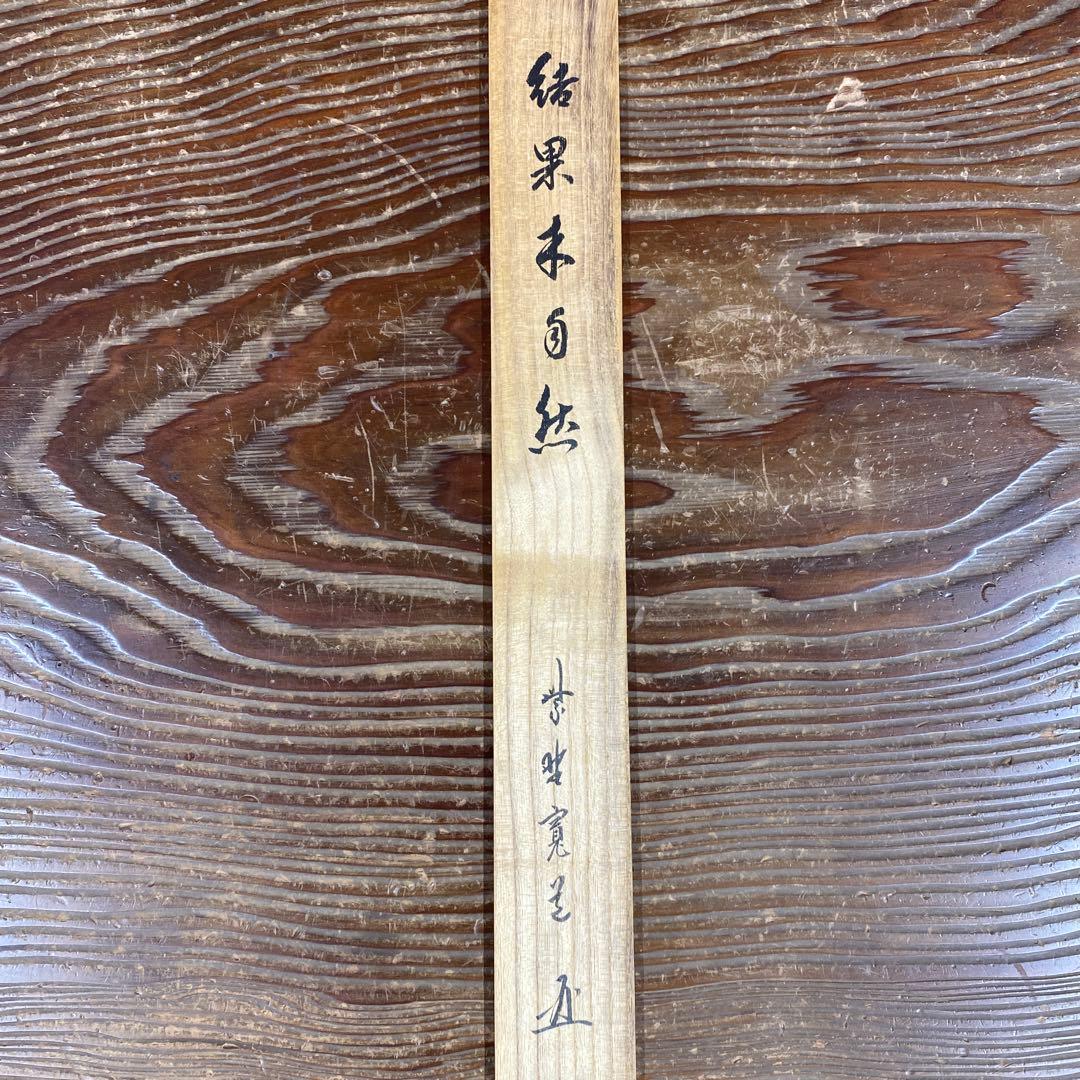 結果自然
紫野寛道